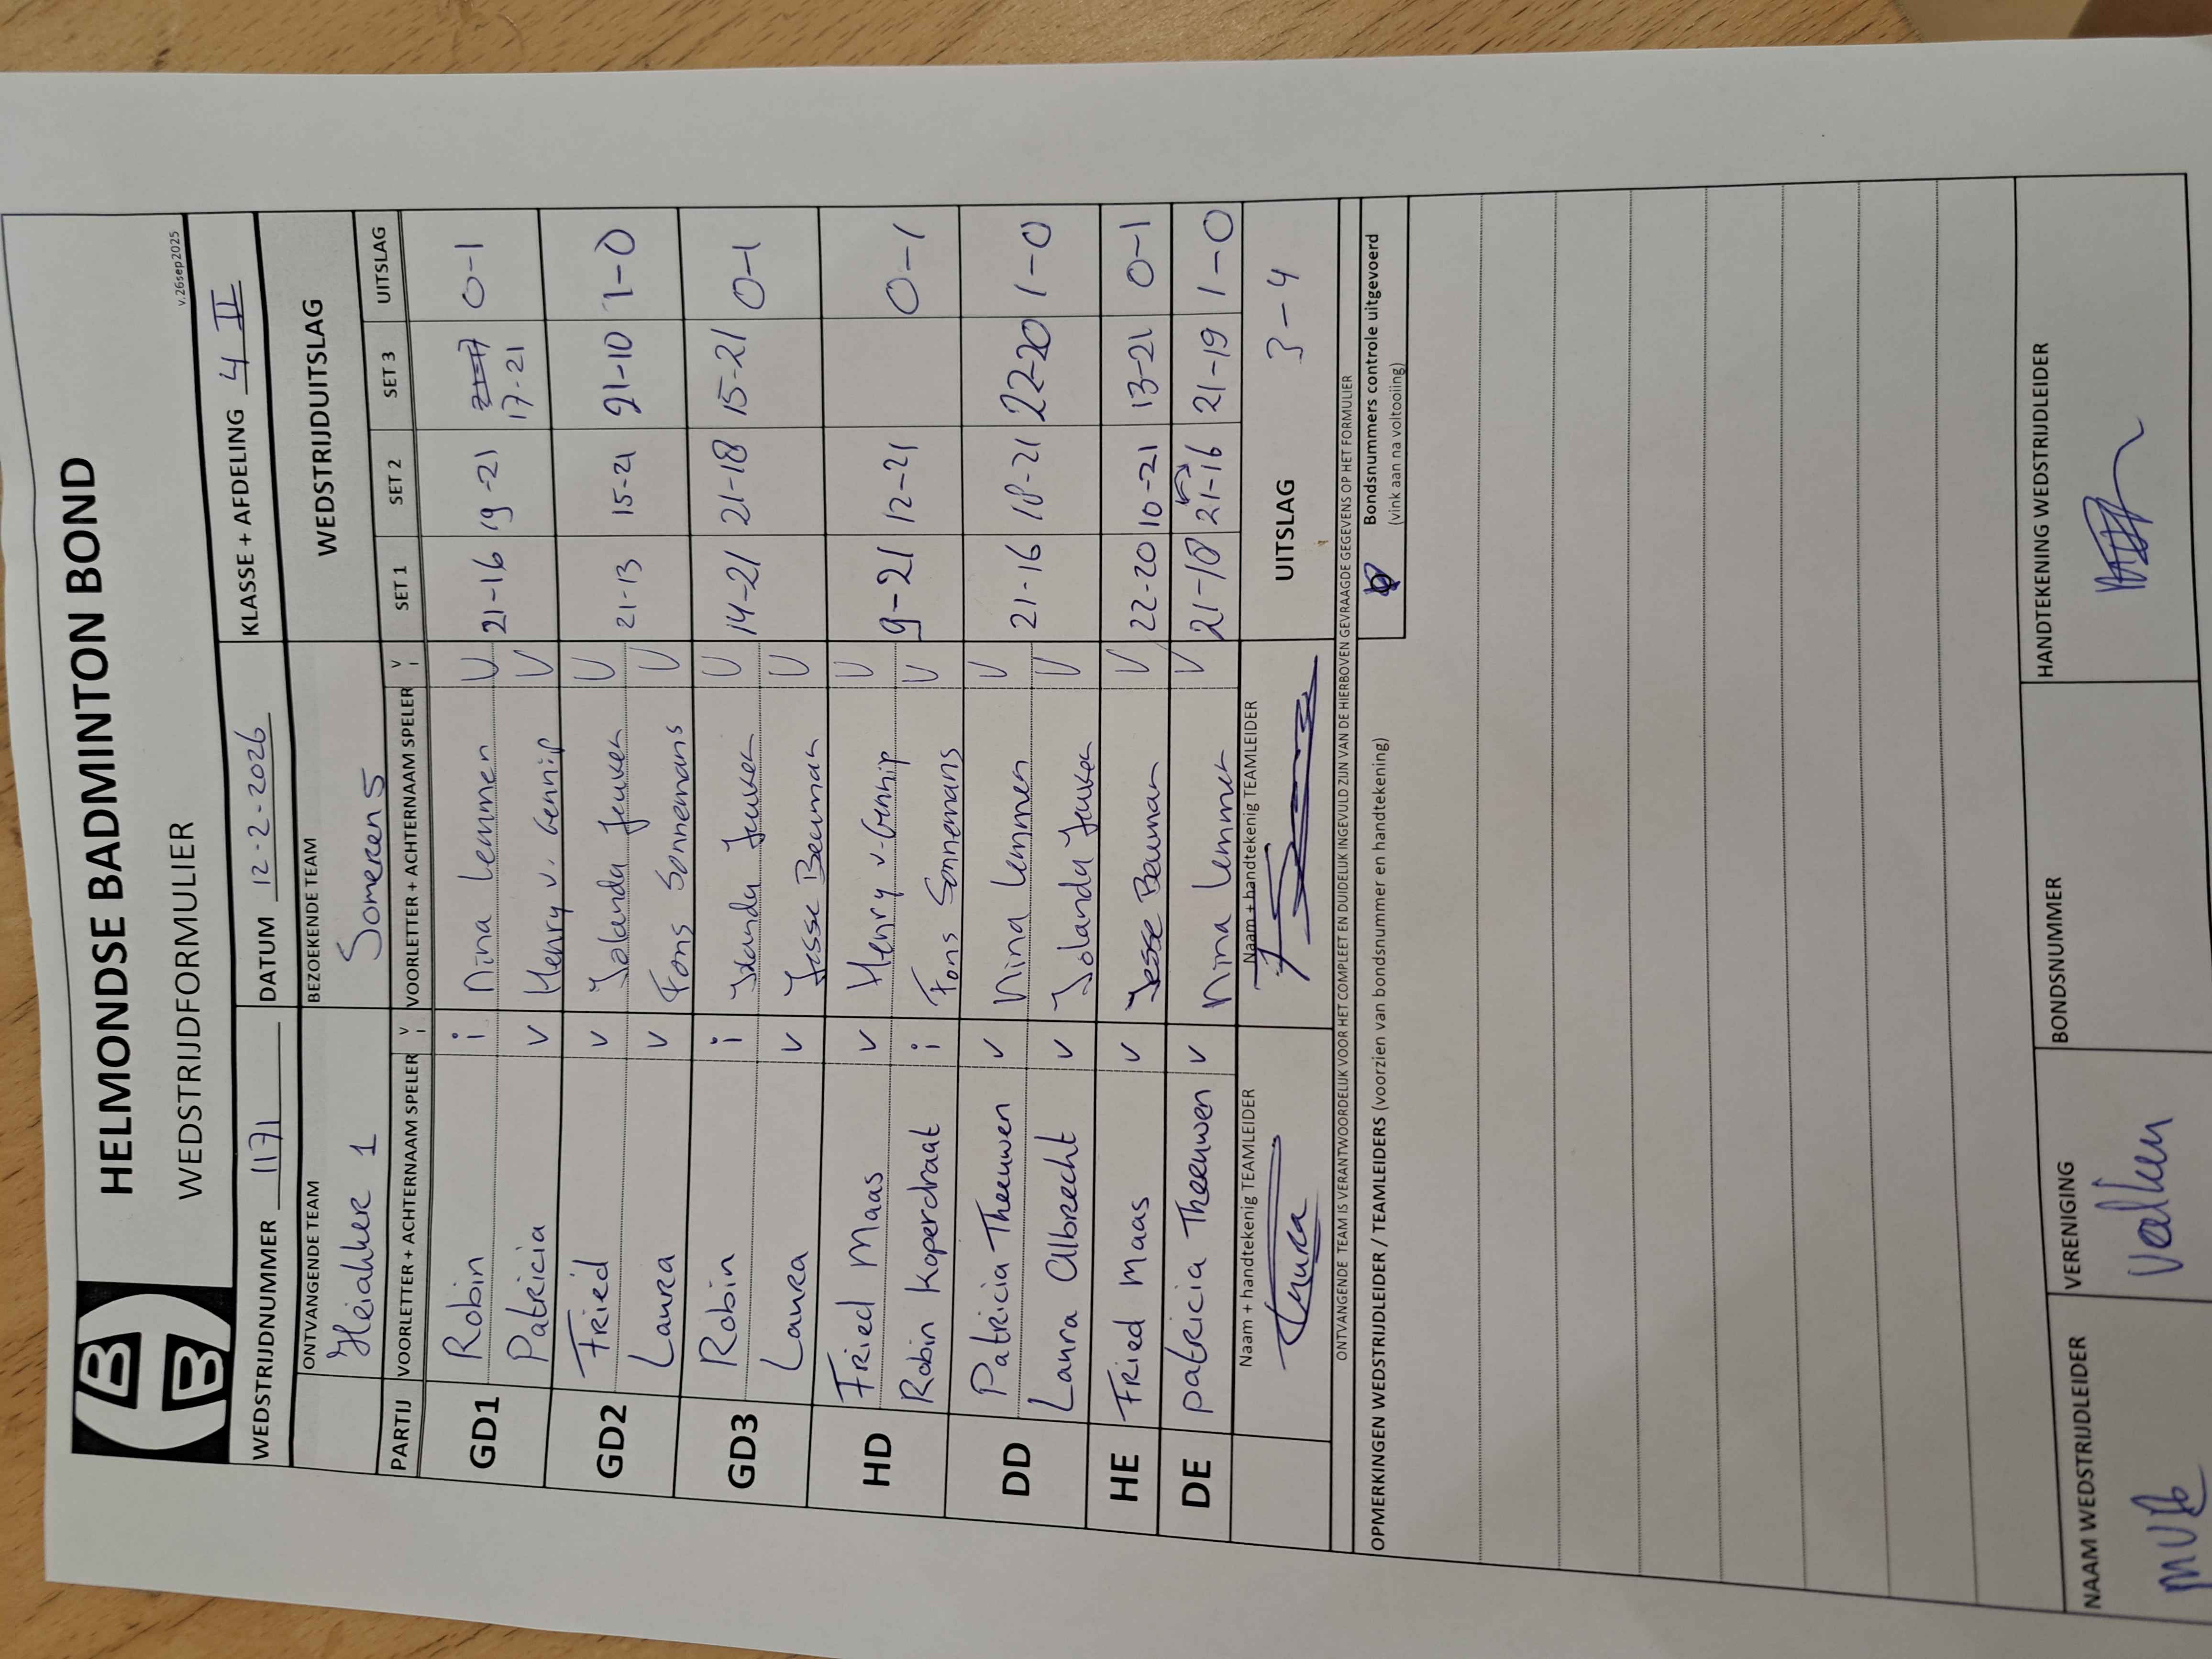 HELMONDSE BADMINTON BOND
WEDSTRIJDFORMULIER
v.26sep2025
WEDSTRIJDNUMMER 1171 DATUM 12-2-2026 KLASSE + AFDELING 4 II
ONTVANGENDE TEAM BEZOEKENDE TEAM WEDSTRIJDUITSLAG
Heiakker 1 Someren 5
PARTIJ VOORLETTER + ACHTERNAAM SPELER V i VOORLETTER + ACHTERNAAM SPELER V i SET 1 SET 2 SET 3 UITSLAG
GD1 Robin i Nina Lemmen V 21-16 19-21 17-21 0-1
Patricia v Henry v. Gennip V
GD2 Fried v Jolanda Jeuken V 21-13 15-21 21-10 1-0
Laura v Fons Sonnemans V
GD3 Robin i Jolanda Jeuken V 14-21 21-18 15-21 0-1
Laura v Jesse Beeuman V
HD Fried Maas v Henry v. Gennip V 9-21 12-21 0-1
Robin Koperdraat i Fons Sonnemans V
DD Patricia Theeuwen v Nina Lemmen V 21-16 18-21 22-20 1-0
Laura Albrecht v Jolanda Jeuken V
HE Fried Maas v Jesse Beuman V 22-20 10-21 13-21 0-1
DE Patricia Theeuwen v Nina Lemmen V 21-18 21-16 21-19 1-0
Naam + handtekenig TEAMLEIDER Naam + handtekenig TEAMLEIDER UITSLAG 3-4
Laura
ONTVANGENDE TEAM IS VERANTWOORDELIJK VOOR HET COMPLEET EN DUIDELIJK INGEVULD ZIJN VAN DE HIERBOVEN GEVRAAGDE GEGEVENS OP HET FORMULIER
OPMERKINGEN WEDSTRIJDLEIDER / TEAMLEIDERS (voorzien van bondsnummer en handtekening)
Bondsnummers controle uitgevoerd
(vink aan na voltooiing)
NAAM WEDSTRIJDLEIDER VERENIGING BONDSNUMMER HANDTEKENING WEDSTRIJDLEIDER